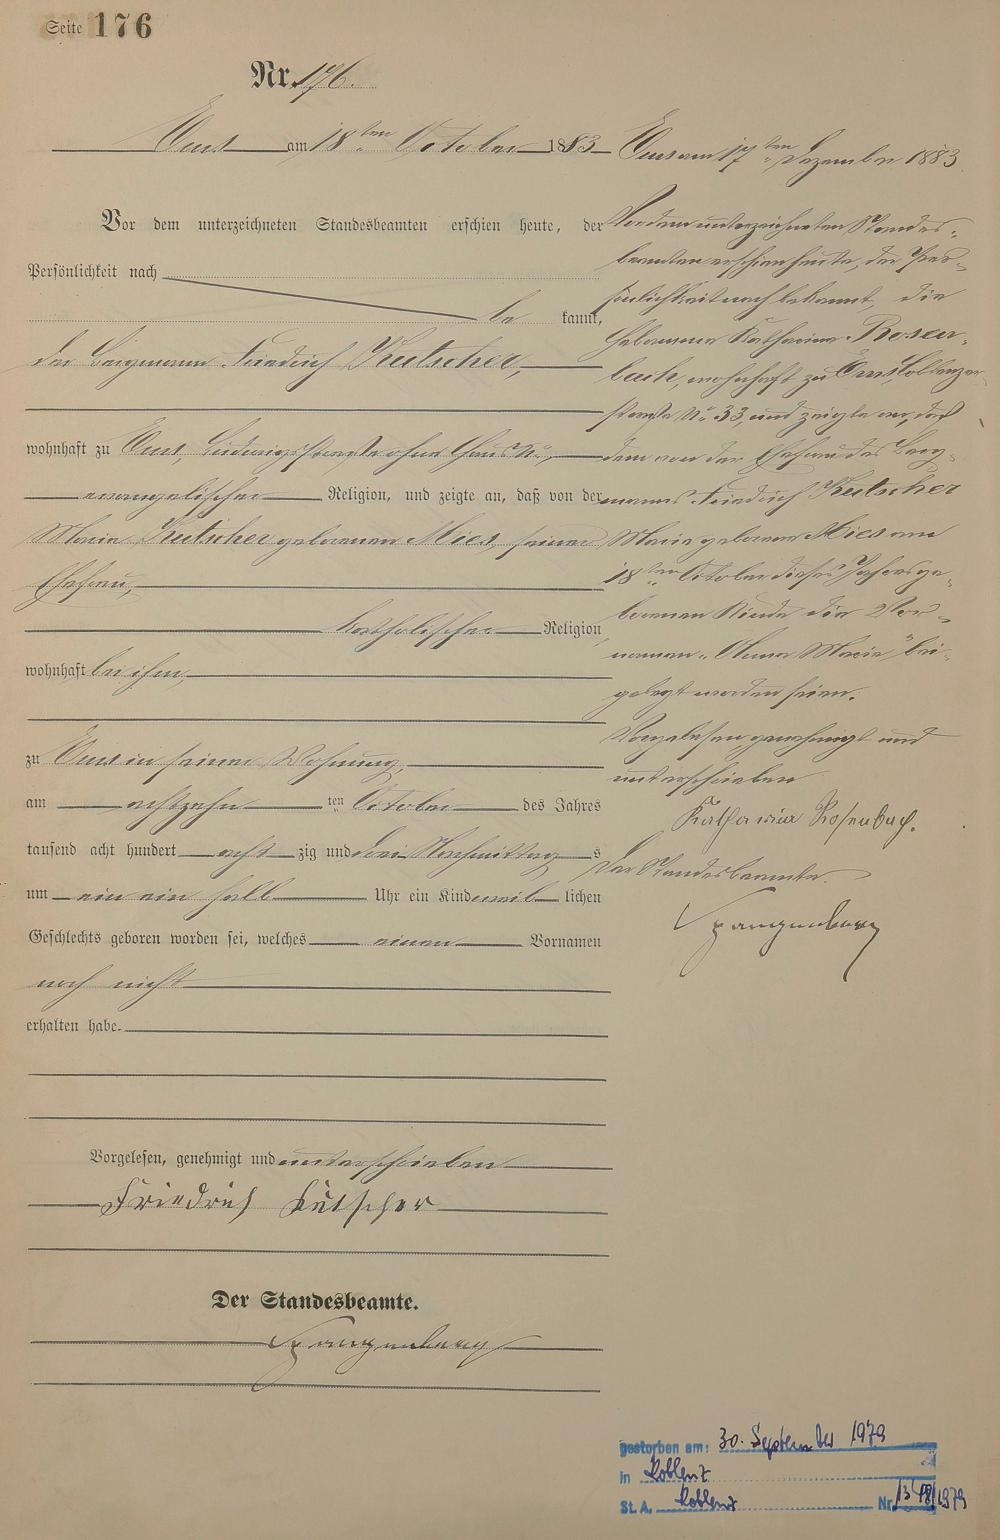 Seite 176
Nr. 176.
Ems am 18ten October 1883
Vor dem unterzeichneten Standesbeamten erschien heute, der
Persönlichkeit nach
be kannt,
der Bergmann Friedrich Kutscher,
wohnhaft zu Ems, Ludwigsstraße ohne Haus No,
evangelischer Religion, und zeigte an, daß von der
Maria Kutscher geborenen Mies, seiner
Ehefrau,
katholischer Religion
wohnhaft bei ihm,
zu Ems in seiner Wohnung,
am achtzehn ten October des Jahres
tausend acht hundert acht zig und drei Nachmittag s
um ein ein halb Uhr ein Kind weib lichen
Geschlechts geboren worden sei, welches einen Vornamen
noch nicht
erhalten habe.
Vorgelesen, genehmigt und unterschrieben
Friedrich Kutscher
Der Standesbeamte.
Spangenberg
Ems am 17ten Dezember 1883
Vor dem unterzeichneten Standes-
beamten erschien heute, der Per-
sönlichkeit nach bekannt, die
Hebamme Katharina Rosen-
bach, wohnhaft zu Ems, Coblenzer-
straße No 33, und zeigte an, daß
dem von der Ehefrau des Berg-
manns Friedrich Kutscher
Maria geborene Mies am
18ten October dieses Jahres ge-
borenen Kinde die Vor-
namen "Anna Maria" bei-
gelegt worden seien.
Vorgelesen, genehmigt und
unterschrieben
Katharina Rosenbach.
Der Standesbeamte.
Spangenberg
gestorben am: 30. September 1979
in Koblenz
St. A. Koblenz Nr. /1979